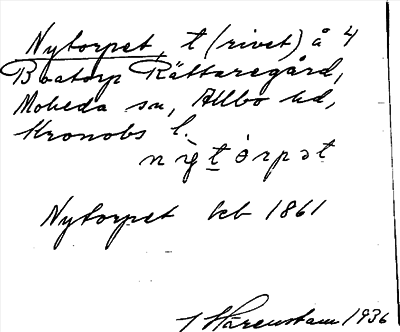 Nytorpet, t (rivet) å 4
Boatorp Rättaregård,
Moheda sn, Allbo hd,
Kronobs l.
nỳtórpət
Nytorpet kb 1861
J Härenstam 1936